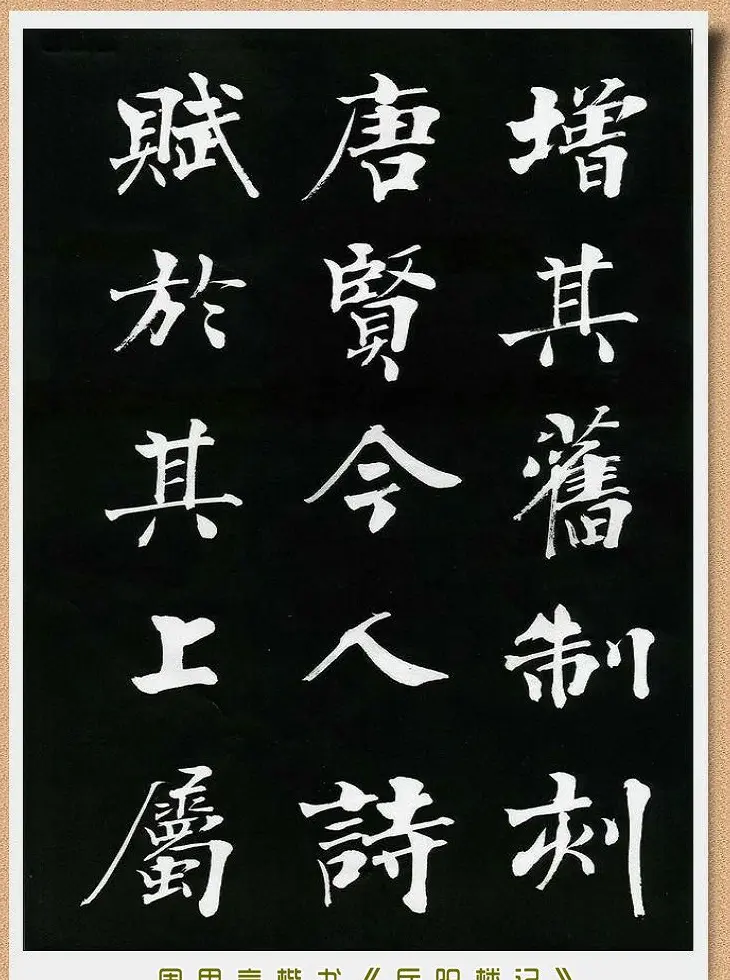 增其舊制刻
唐賢今人詩
賦於其上屬
周思言楷书《岳阳楼记》